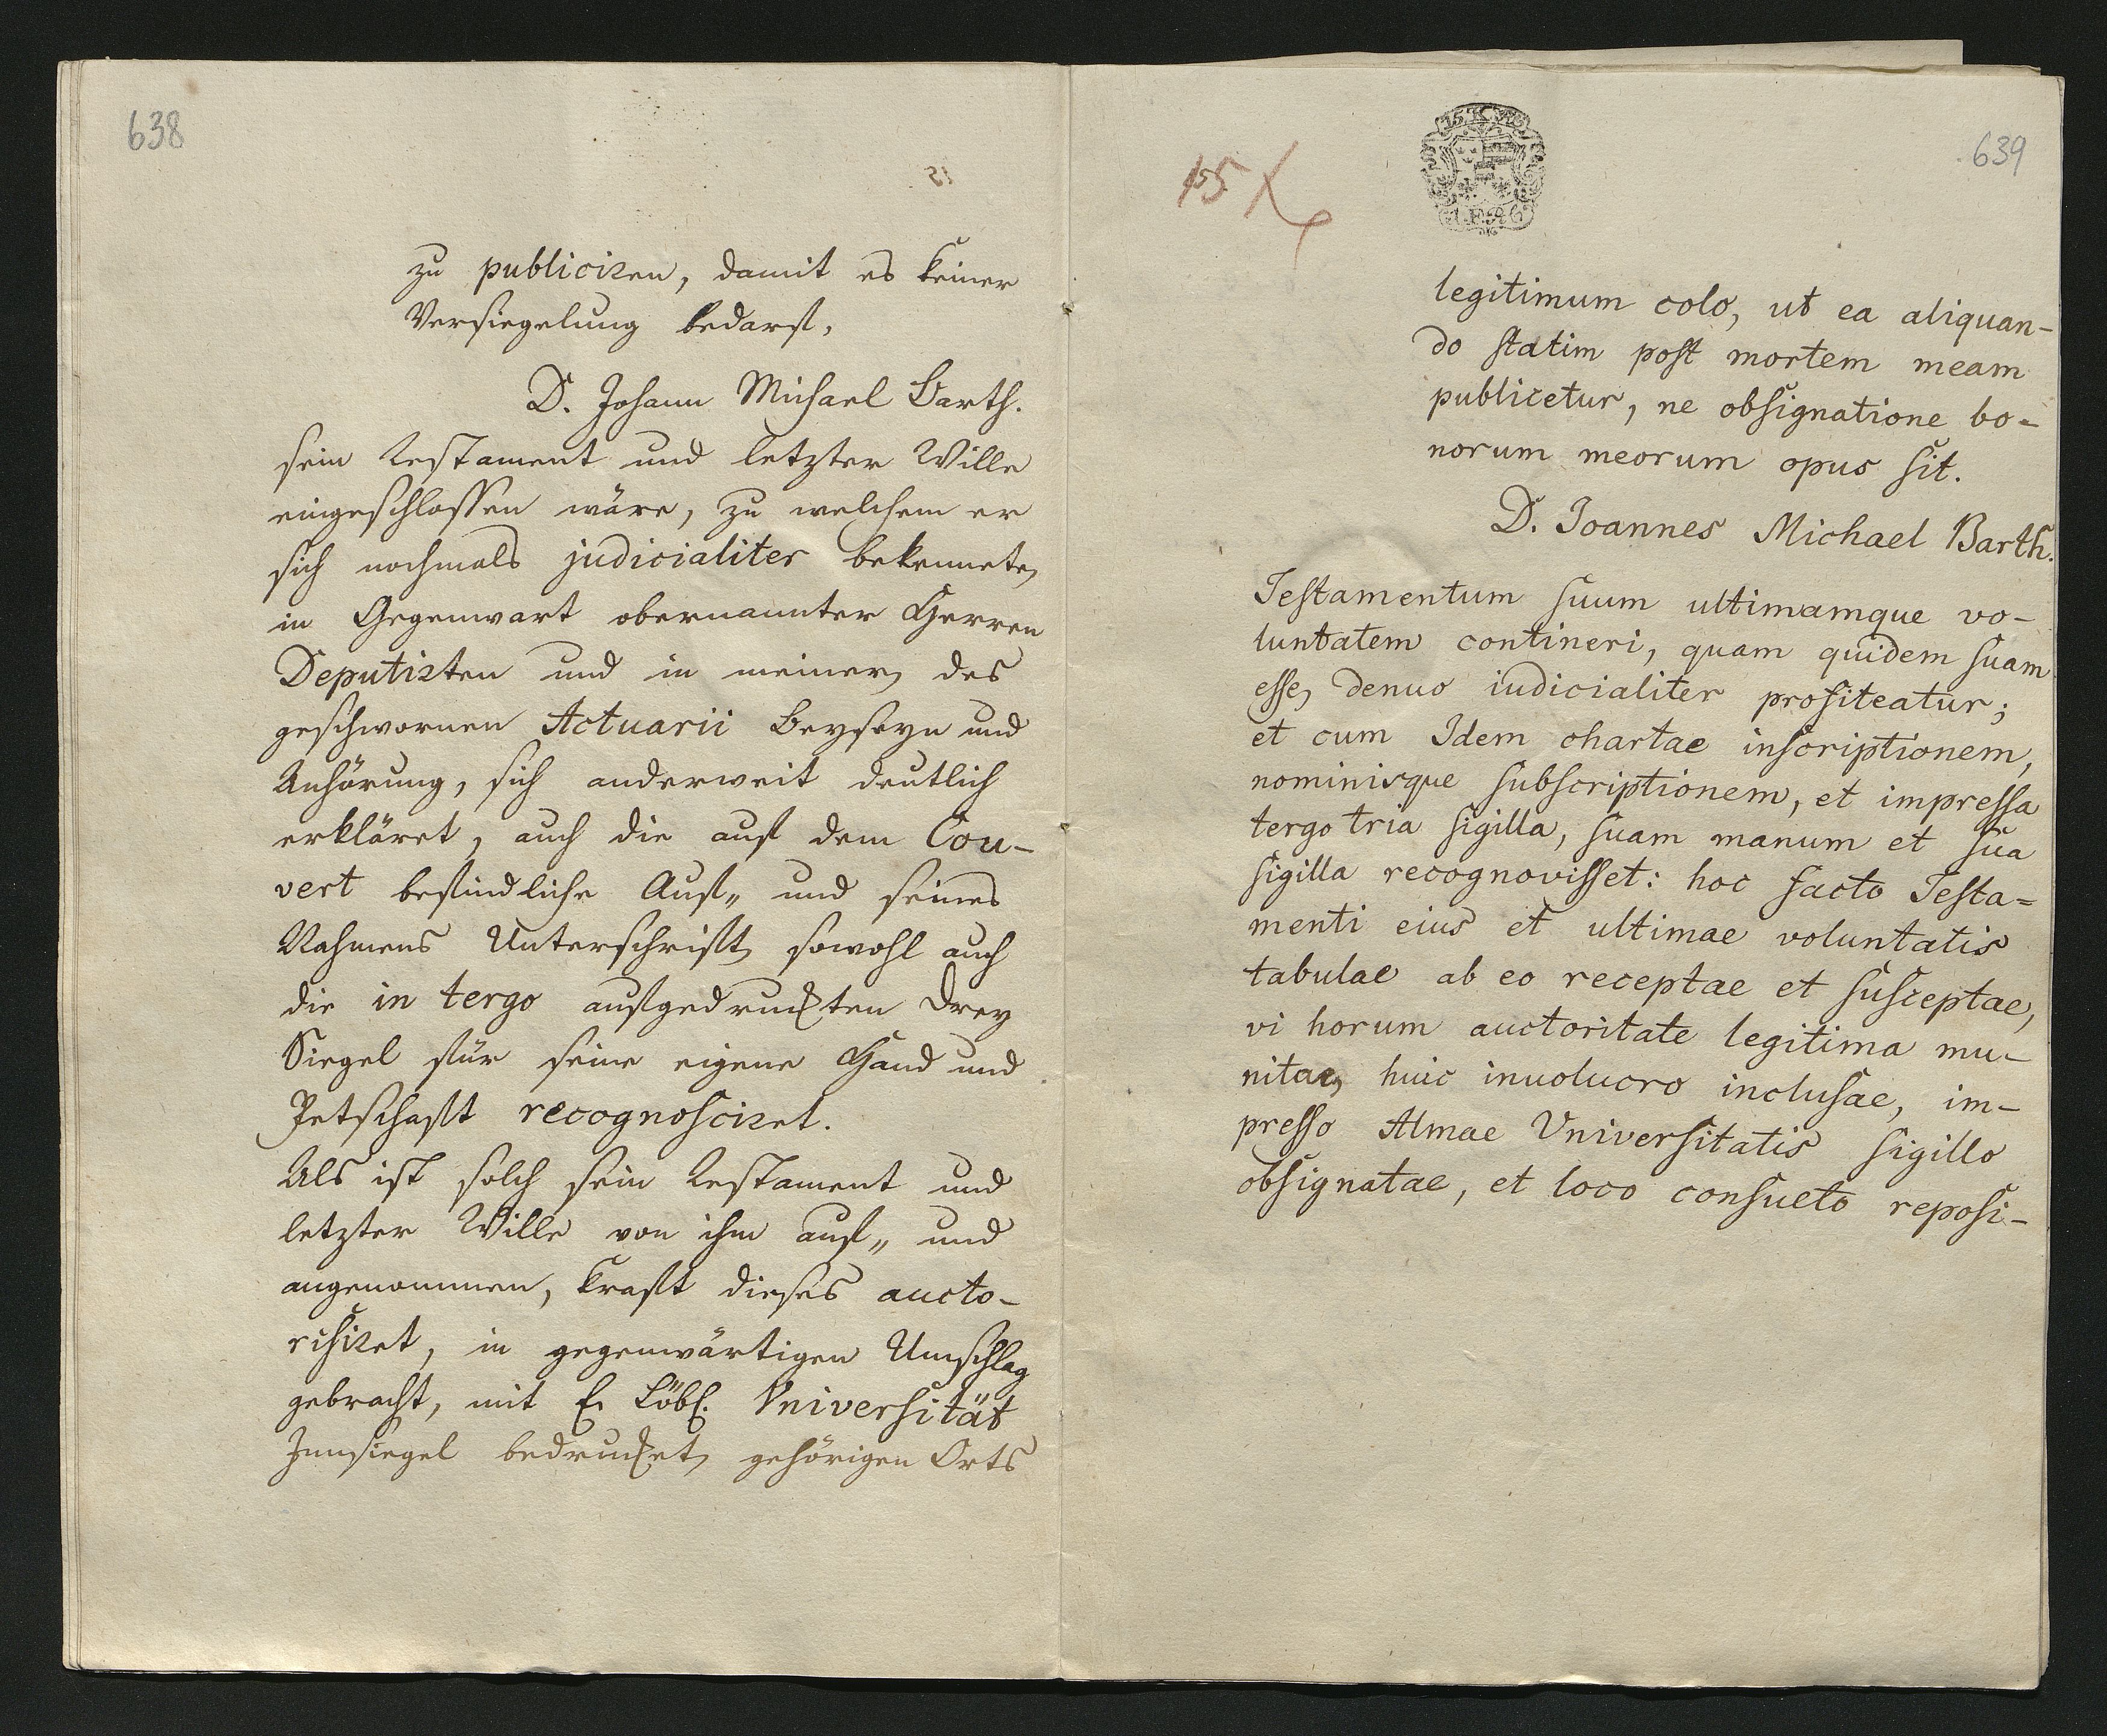 638
zu publiciren, damit es keiner
Versiegelung bedarf,
D. Johann Michael Barth.
sein Testament und letzter Wille
eingeschlossen wäre, zu welchem er
sich nochmals judicialiter bekennete,
in Gegenwart obernannter Herren
Deputirten und in meiner, des
geschwornen Actuarii Beyseyn und
Anhörung, sich anderweit deutlich
erkläret, auch die auf dem Cou-
vert befindliche Auf„ und seines
Nahmens Unterschrift, sowohl auch
die in tergo aufgedruckten drey
Siegel für seine eigene Hand und
Petschaft recognosciret.
Als ist solch sein Testament und
letzter Wille von ihm auf„ und
angenommen, kraft dieses aucto-
risiret, in gegenwärtigen Umschlag
gebracht, mit E. Löbl. Vniversität
Innsiegel bedrucket, gehörigen Orts
639
15 X
legitimum colo, ut ea aliquan-
do ſtatim poſt mortem meam
publicetur, ne obſignatione bo-
norum meorum opus ſit.
D. Joannes Michael Barth.
Teſtamentum ſuum ultimamque vo-
luntatem contineri, quam quidem ſuam
eſſe, denuo iudicialiter profiteatur;
et cum Idem chartae inſcriptionem,
nominisque ſubſcriptionem, et impreſſa
tergo tria ſigilla, ſuam manum et ſua
ſigilla recognoviſſet: hoc facto Teſta-
menti eius et ultimae voluntatis
tabulae ab eo receptae et ſuſceptae,
vi horum auctoritate legitima mu-
nitae, huic inuolucro incluſae, im-
preſſo Almae Vniverſitatis ſigillo
obſignatae, et loco conſueto repoſi-